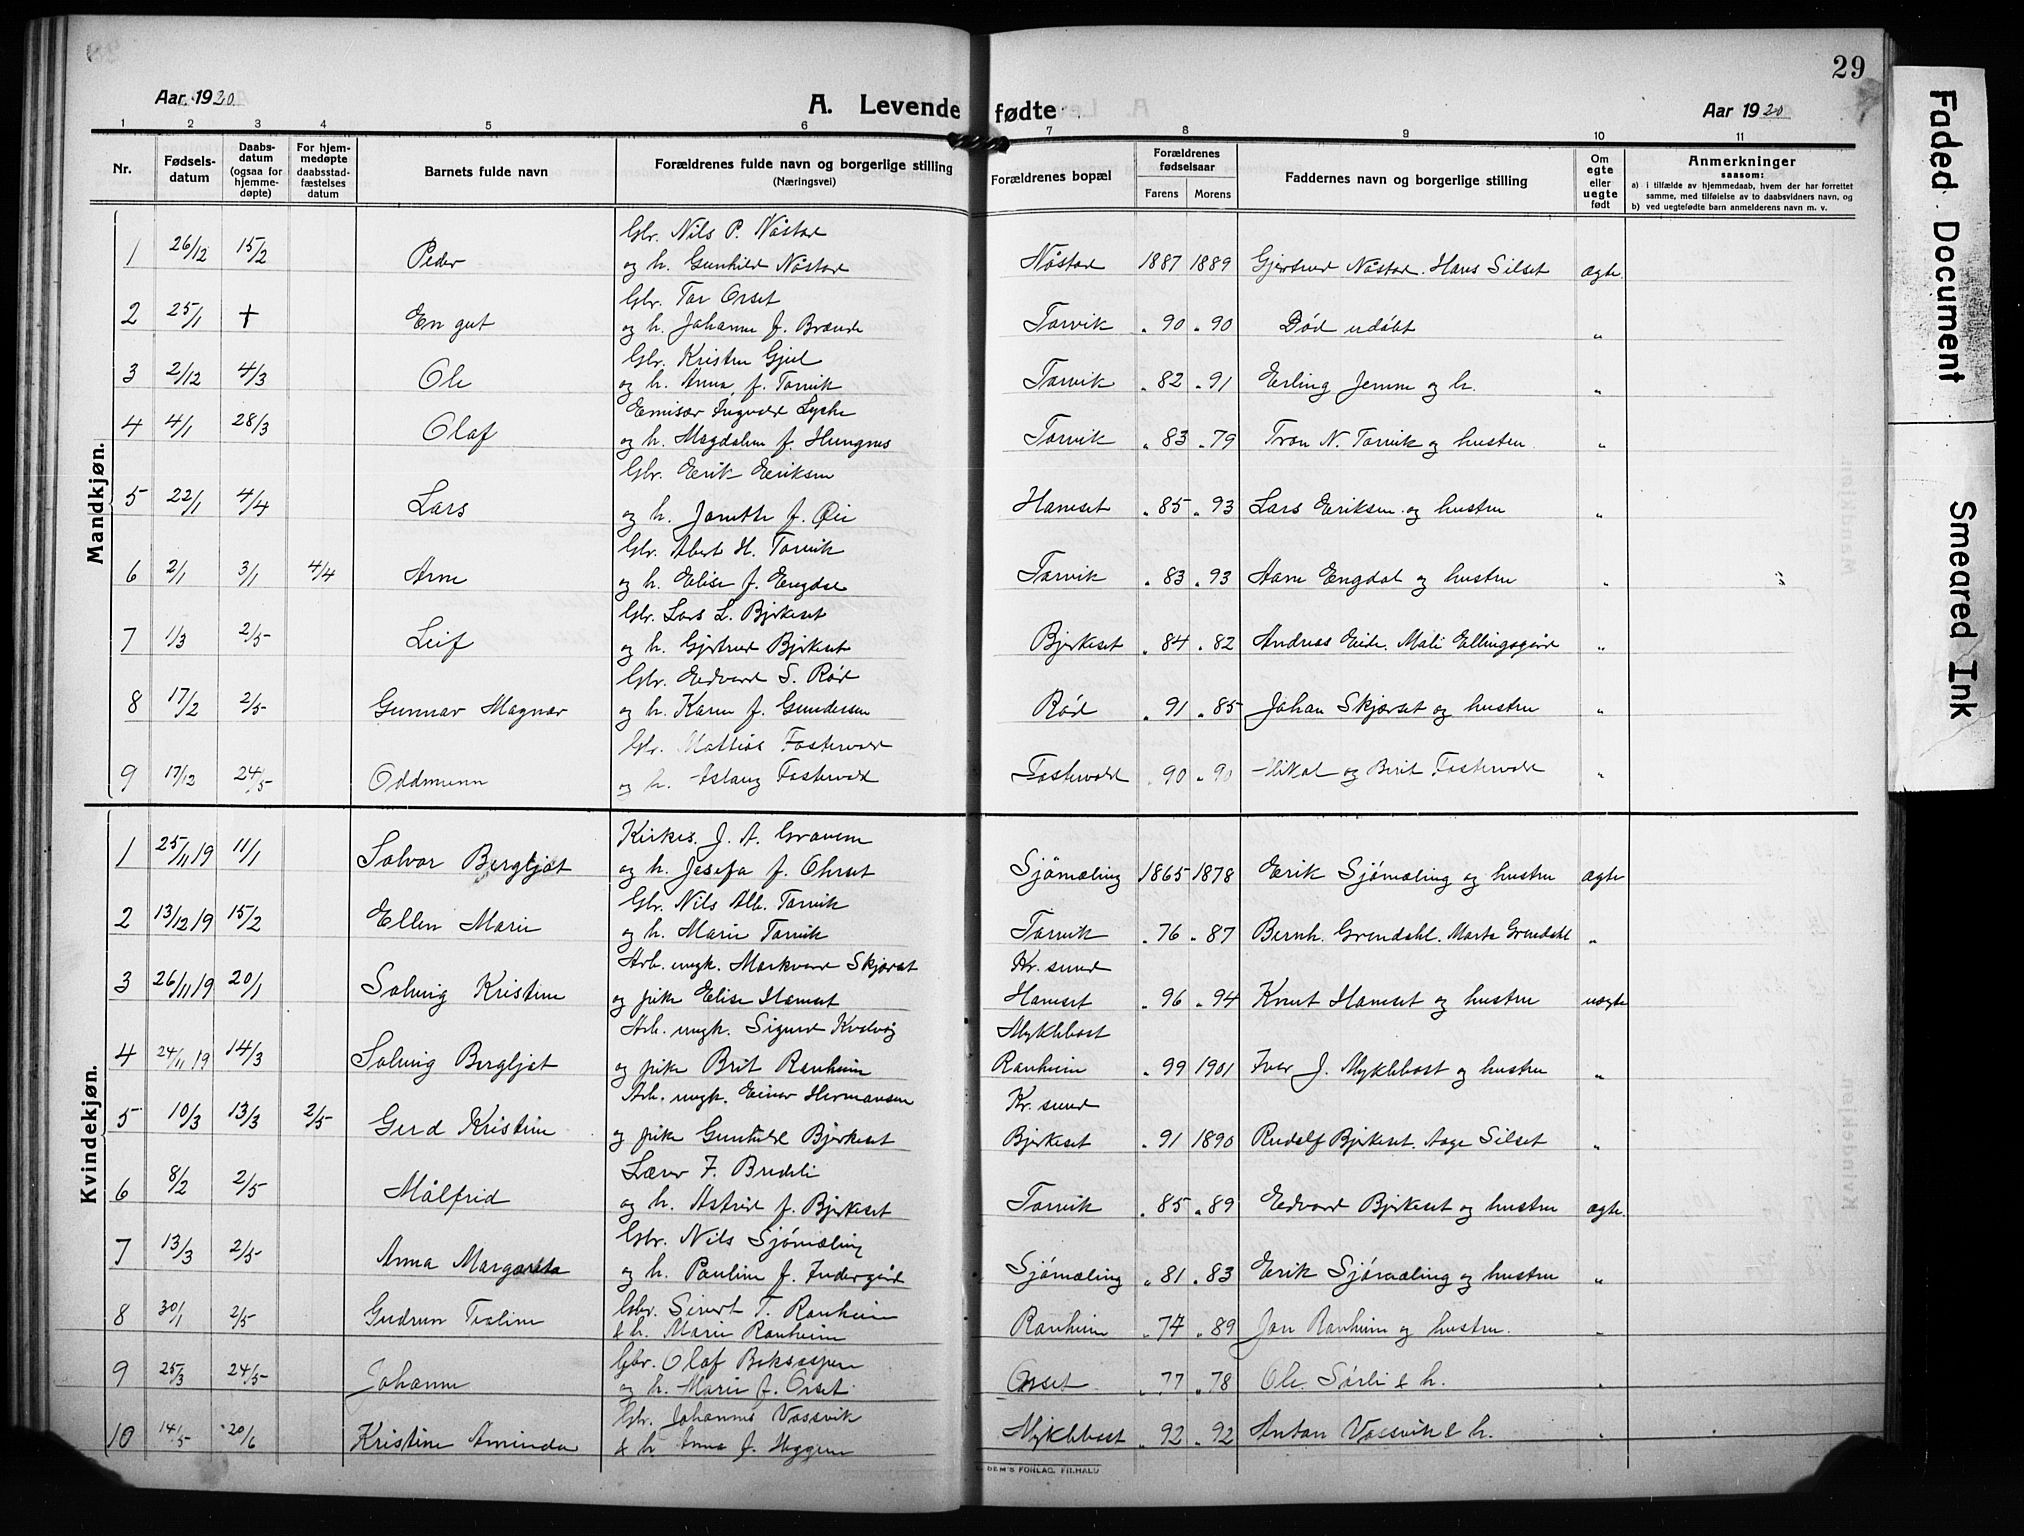 29
Aar 1920. A. Levende fødte Aar 1920
1 2 3 4 5 6 7 8 9 10 11
Nr. | Fødsels-datum | Daabs-datum (ogsaa for hjemme-døpte) | For hjem-medøpte daabsstad-fæstelses datum | Barnets fulde navn | Forældrenes fulde navn og borgerlige stilling (Næringsvei) | Forældrenes bopæl | Forældrenes fødselsaar Farens Morens | Faddernes navn og borgerlige stilling | Om egte eller uegte født | Anmerkninger saasom: a) i tilfælde av hjemmedaab, hvem der har forrettet samme, med tilføielse av to daabsvidners navn, og b) ved uegtefødte barn anmelderens navn m. v.
Mandkjøn.
Gbr. Nils P. Nåstad
1 26/12 15/2 Peder og h. Gunhild Nåstad Nåstad 1887 1889 Gjertrud Nåstad. Hans Silset ægte.
Gbr. Tor Orset
2 25/1 + En gut og h. Johanne f. Brænde Torvik " 90 " 90 Død udøbt "
Gbr. Kristen Gjul
3 2/12 4/3 Ole og h. Anna f. Torvik Torvik " 82 " 91 Erling Jemne og h. "
Emisær Ingvald Lyche
4 4/1 28/3 Olaf og h. Magdalene f. Hungnes Torvik " 83 " 79 Tron N. Torvik og hustru. "
Gbr. Erik Eriksen
5 22/1 4/4 Lars og h. Janette f. Øie Hamset " 85 " 93 Lars Eriksen og hustru "
Gbr. Abert H. Torvik
6 2/1 3/1 4/4 Arne og h. Elise f. Engdal Torvik " 83 " 93 Hans Engdal og hustru "
Gbr. Lars L. Bjerkeset
7 1/3 2/5 Leif og h. Gjertrud Bjerkeset Bjerkeset " 84 " 82 Andreas Eide. Mali Ellingsgård "
Gbr. Edvard S. Rød
8 17/2 2/5 Gunnar Magnar og h. Karen f. Gundersen Rød " 91 " 85 Johan Skjørset og hustru "
Gbr. Mattias Fostervold
9 17/12 24/5 Oddmunn og h. Aslaug Fostervold Fostervold 90 " 90 Mikal og Berit Fostervold "
Kvindekjøn.
Kirkes. J. A. Gravem
1 25/11 19 11/1 Solvor Bergljot og h. Josefa f. Ohrset Sjømæling 1865 1878 Erik Sjømæling og hustru ægte
Gbr. Nils Alb. Torvik
2 13/12 19 15/2 Ellen Marie og h. Marie Torvik Torvik " 76 " 87 Bernh. Grendahl. Marta Grendahl "
Arb. ungk. Markvard Skjørset Kr. sund
3 26/11 19 20/1 Solveig Kristine og pike Elise Hamset Hamset " 96 " 94 Knut Hamset og hustru uægte
Arb. ungk. Sigurd Kvalvåg Myklebost
4 24/11 19 14/3 Solveig Bergljot og pike Brit Ranheim Ranheim " 99 1901 Iver J. Myklebost og hustru "
Arb. ungk. Einar Hermansen Kr. sund
5 10/3 13/3 2/5 Gerd Kristine og pike Gunhild Bjerkeset Bjerkeset " 91 1890 Rudolf Bjerkeset. Aage Silset "
Lærer F. Bredeli
6 8/2 2/5 Målfrid og h. Astrid f. Bjerkeset Torvik " 85 " 89 Edvard Bjerkeset og hustru ægte.
Gbr. Nils Sjømæling
7 13/3 2/5 Anna Margareta og h. Pauline f. Indergård Sjømæling " 81 " 83 Erik Sjømæling og hustru "
Gbr. Sivert T. Ranheim
8 30/1 2/5 Gudrun Teoline & h. Marie Ranheim Ranheim " 77 " 89 Jon Ranheim og hustru. "
Gbr. Olaf Boksaspen
9 25/3 24/5 Johanne og h. Marie f. Orset. Orset " 77 " 78 Ole Sørli & h. "
Gbr. Johannes Vassvik
10 14/5 20/6 Kristine Aminda & h. Anna f. Hyggen Myklebost " 92 " 92 Anton Vassvik & h. "
DEM'S FORLAG. FR.HALD
Faded Document
Smeared Ink